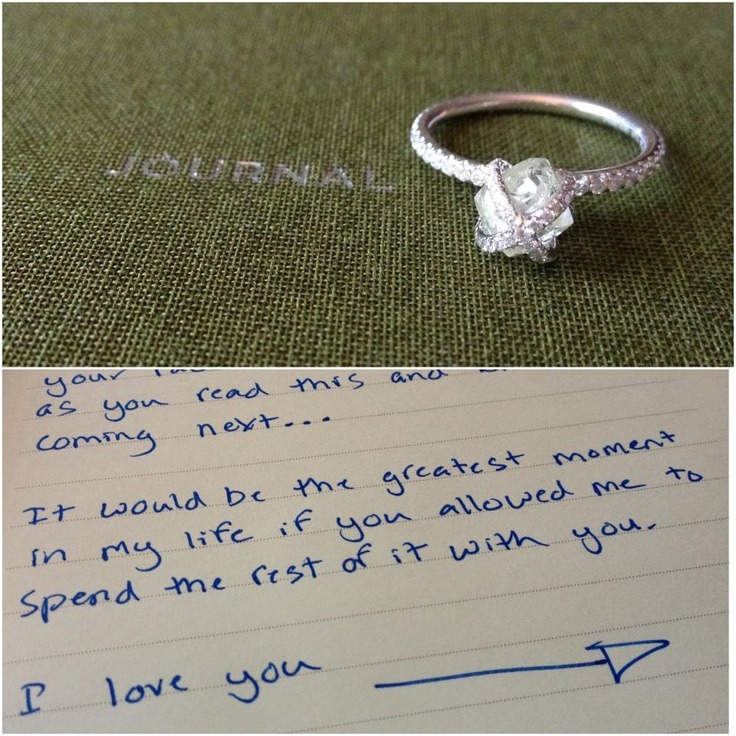 JOURNAL
your
as you read this and
coming next...
It would be the greatest moment
in my life if you allowed me to
spend the rest of it with you.
I love you